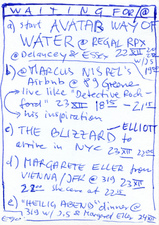 WAITING FOR/@
a) start AVATAR WAY OF
WATER @ REGAL RPX
@ Delancey & Essex 22 XII
w/J.S.
b) @ MARCUS NISPEL's
Airbnb @ 59 Greene
→ live like "Detective Roch-
ford" 23 XII 18 15 - 21 15
his inspiration
c) THE BLIZZARD to
ELLIOTT
arrive in NYC 23 XII
d) MARGARETE ELLER from
VIENNA/JFK @ 23 XII
22 she came at 22
e) "HEILIG ABEND" dinner @
319 w/ J.S & Margaret Eller 24 XII